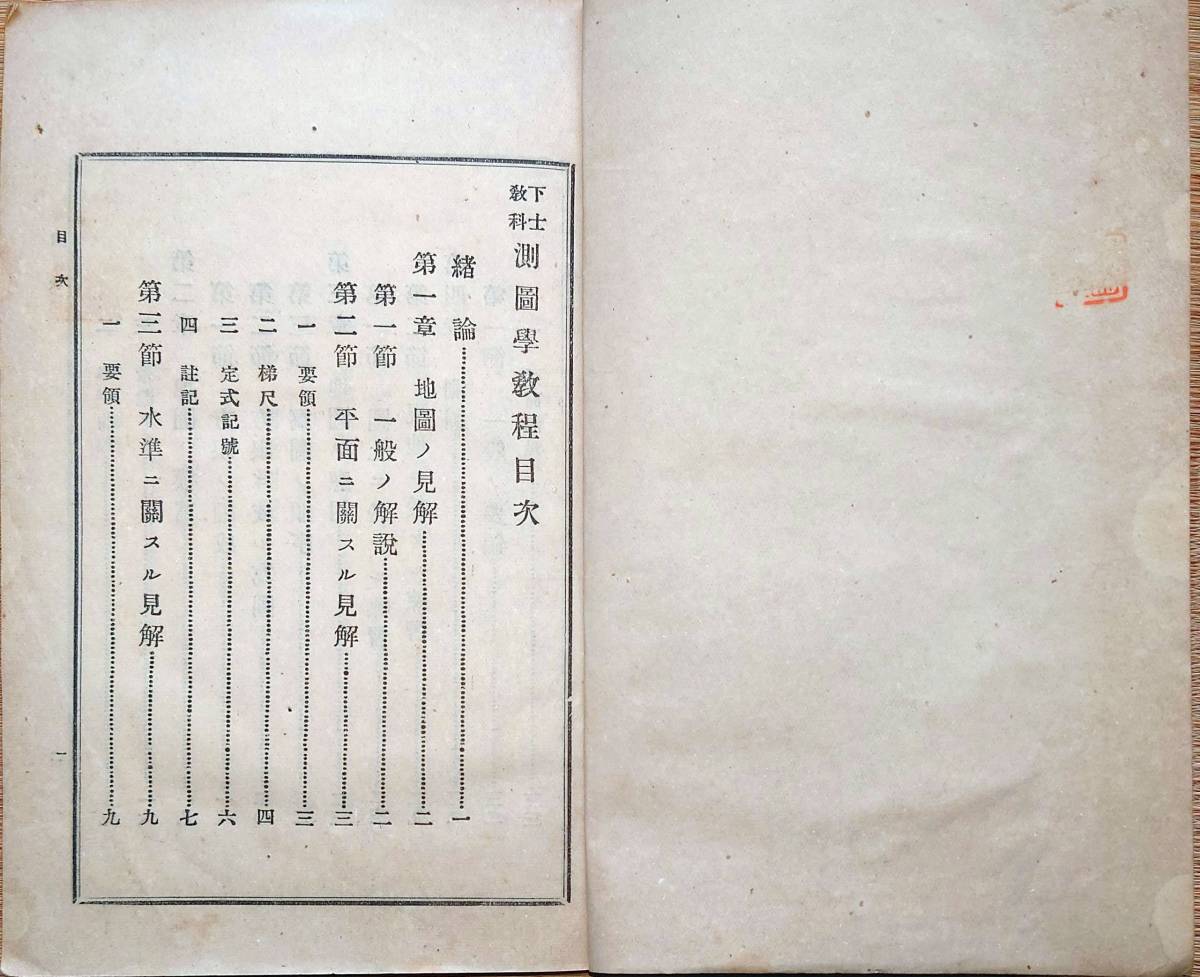 下士
教科
測圖學教程目次
緒論……一
第一章 地圖ノ見解……二
第一節 一般ノ解説……二
第二節 平面ニ關スル見解……三
一 要領……三
二 梯尺……四
三 定式記號……六
四 註記……七
第三節 水準ニ關スル見解……九
一 要領……九
目次
一